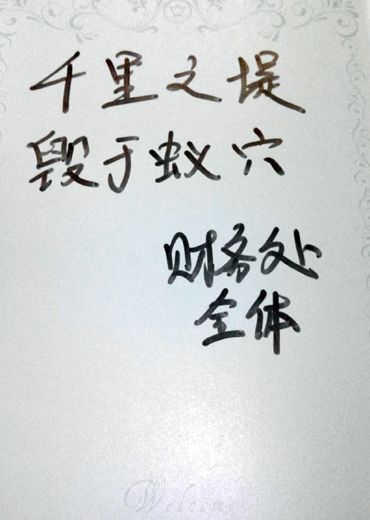 千里之堤
毁于蚁穴
财务处
全体
Welcome